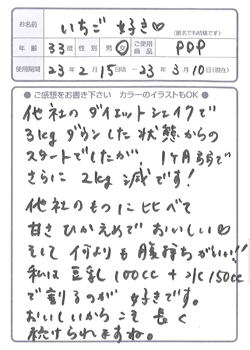 お名前 いちご好き♡
(匿名でも結構です)
年齢 33歳 性別 男・女 ご使用商品 PDP
使用期間 23年2月15日〜23年3月10日(現在)
●ご感想をお書き下さい カラーのイラストもOK●
他社のダイエットシェイクで
3kgダウンした状態からの
スタートでしたが、1ヶ月弱で
さらに2kg減です!
他社のものに比べて
甘さひかえめでおいしい♡
そして何よりも腹持ちがいい!!
私は豆乳100cc+水150cc
で割るのが好きです。
おいしいからこそ長く
続けられますね。